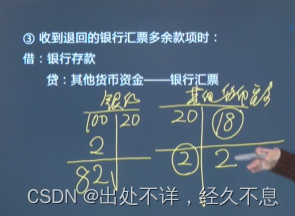 ③ 收到退回的银行汇票多余款项时：
借：银行存款
贷：其他货币资金——银行汇票
银行 其他货币资金
100 20 20 18
2 2 2
82
CSDN @出处不详，经久不息